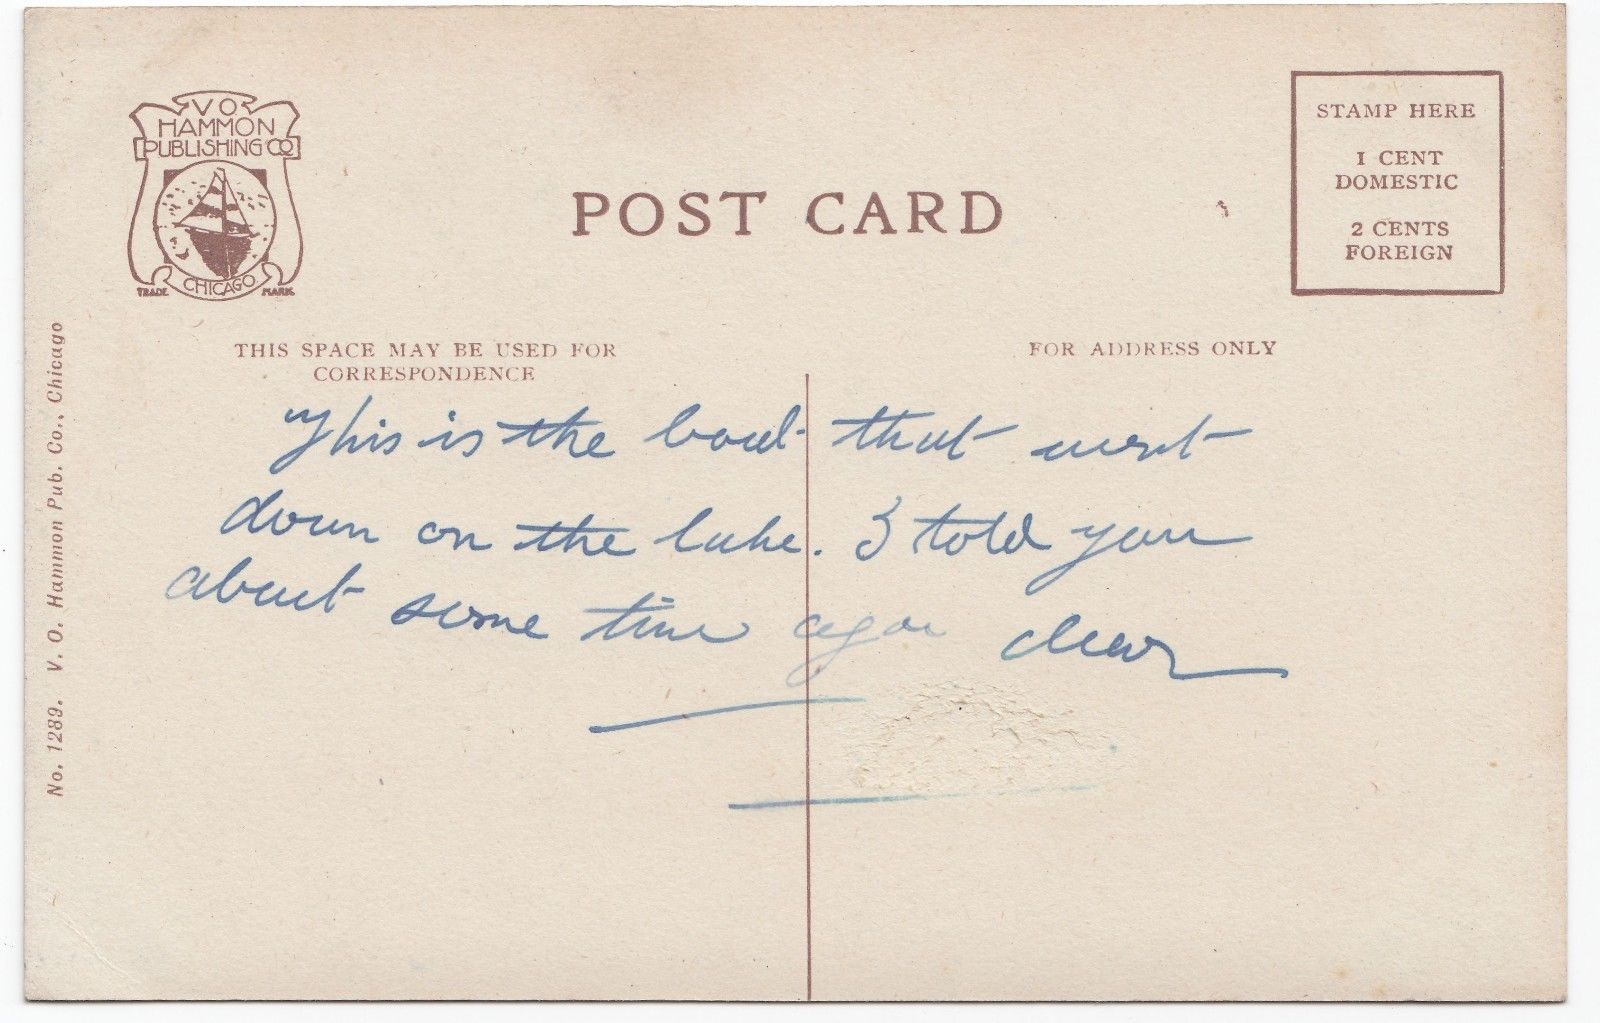 V.O.
HAMMON
PUBLISHING CO
CHICAGO
TRADE MARK
POST CARD
STAMP HERE
1 CENT
DOMESTIC
2 CENTS
FOREIGN
THIS SPACE MAY BE USED FOR
CORRESPONDENCE
FOR ADDRESS ONLY
This is the boat that went
down on the lake. I told you
about some time ago dear
No. 1289. V. O. Hammon Pub. Co., Chicago